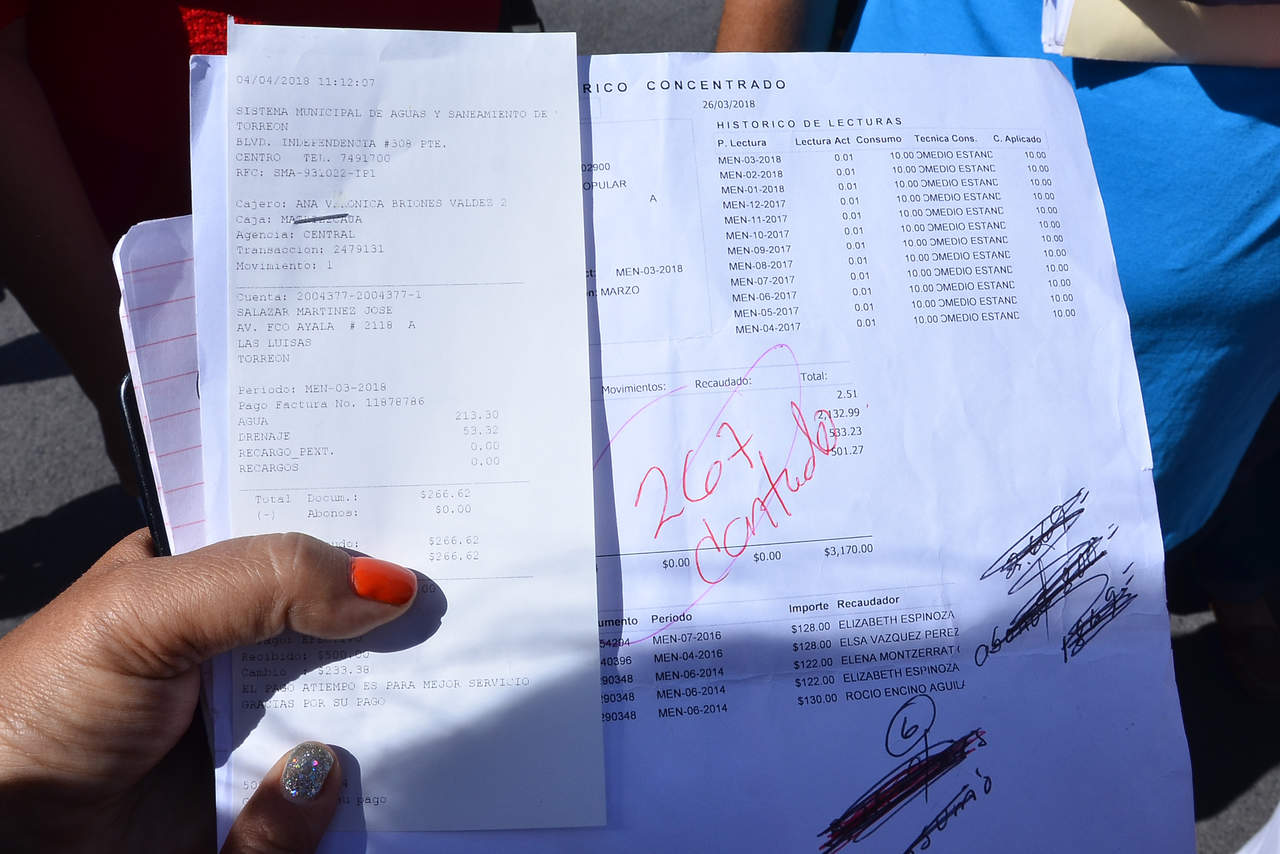 04/04/2018 11:12:07
SISTEMA MUNICIPAL DE AGUAS Y SANEAMIENTO DE
TORREON
BLVD. INDEPENDENCIA #308 PTE.
CENTRO TEL. 7491700
RFC: SMA-931022-IP1
Cajero: ANA VERONICA BRIONES VALDEZ 2
Caja:
Agencia: CENTRAL
Transaccion: 2479131
Movimiento: 1
Cuenta: 2004377-2004377-1
SALAZAR MARTINEZ JOSE
AV. FCO AYALA # 2118 A
LAS LUISAS
TORREON
Periodo: MEN-03-2018
Pago Factura No. 11878786
AGUA 213.30
DRENAJE 53.32
RECARGO_PEXT. 0.00
RECARGOS 0.00
Total Docum.: $266.62
(-) Abonos: $0.00
$266.62
$266.62
Recibido: $500.00
Cambio : $233.38
EL PAGO ATIEMPO ES PARA MEJOR SERVICIO
GRACIAS POR SU PAGO
pago
RICO CONCENTRADO
26/03/2018
HISTORICO DE LECTURAS
P. Lectura Lectura Act Consumo Tecnica Cons. C. Aplicado
MEN-03-2018 0.01 10.00 OMEDIO ESTAND 10.00
MEN-02-2018 0.01 10.00 OMEDIO ESTAND 10.00
MEN-01-2018 0.01 10.00 OMEDIO ESTAND 10.00
MEN-12-2017 0.01 10.00 OMEDIO ESTAND 10.00
MEN-11-2017 0.01 10.00 OMEDIO ESTAND 10.00
MEN-10-2017 0.01 10.00 OMEDIO ESTAND 10.00
MEN-09-2017 0.01 10.00 OMEDIO ESTAND 10.00
MEN-08-2017 0.01 10.00 OMEDIO ESTAND 10.00
MEN-07-2017 0.01 10.00 OMEDIO ESTAND 10.00
MEN-06-2017 0.01 10.00 OMEDIO ESTAND 10.00
MEN-05-2017 0.01 10.00 OMEDIO ESTAND 10.00
MEN-04-2017 0.01 10.00 OMEDIO ESTAND 10.00
02900
OPULAR
A
MEN-03-2018
MARZO
Movimientos: Recaudado: Total:
2.51
2,132.99
533.23
501.27
267
$0.00 $0.00 $3,170.00
umento Periodo Importe Recaudador
54294 MEN-07-2016 $128.00 ELIZABETH ESPINOZA
40396 MEN-04-2016 $128.00 ELSA VAZQUEZ PEREZ
290348 MEN-06-2014 $122.00 ELENA MONTZERRAT
290348 MEN-06-2014 $122.00 ELIZABETH ESPINOZA
$130.00 ROCIO ENCINO AGUILA
6